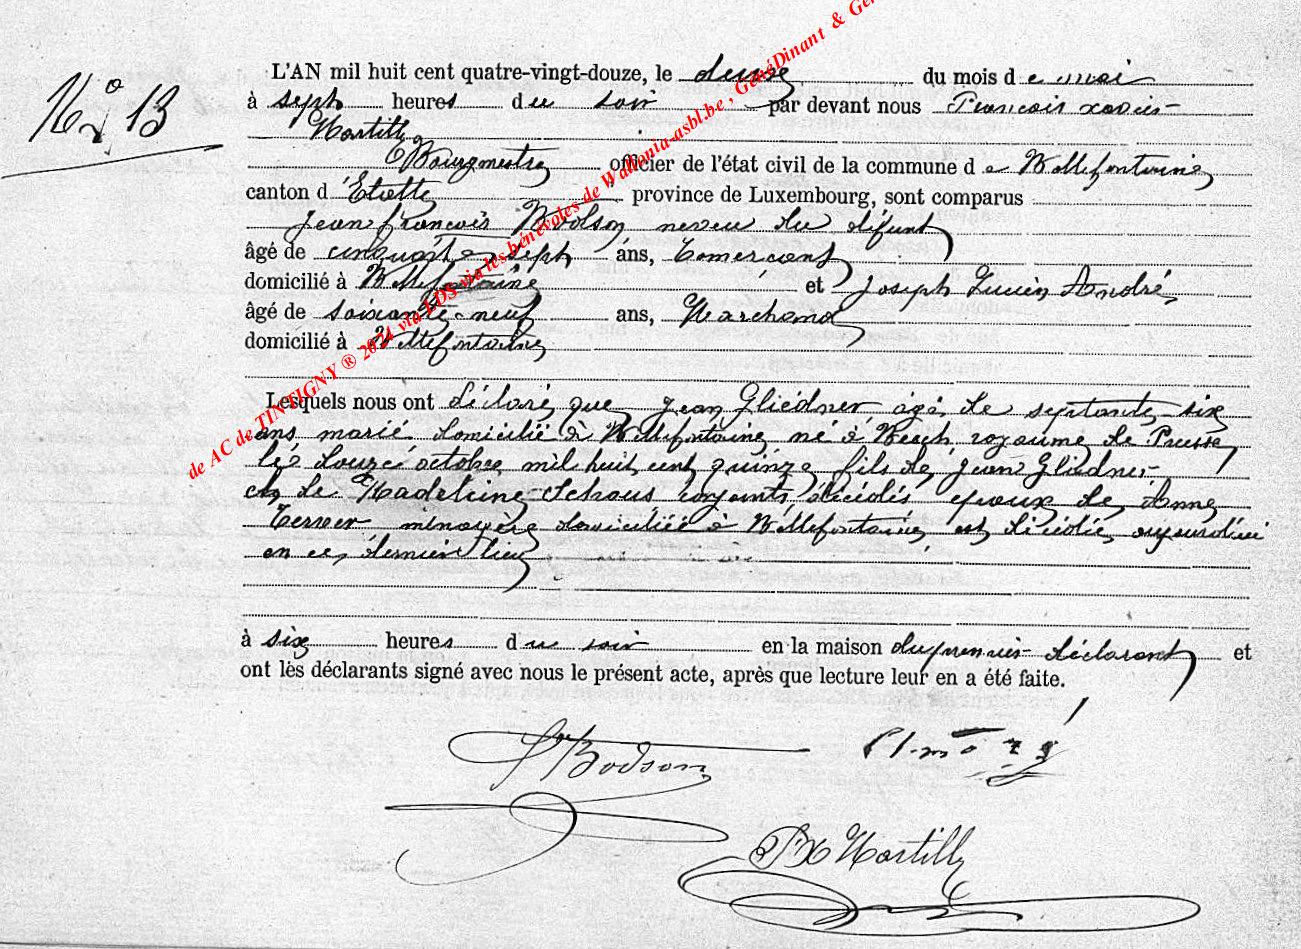 No 13
L'AN mil huit cent quatre-vingt-douze, le deux du mois de mai
à sept heures du soir par devant nous François xavier
Martilly
Bourgmestre officier de l'état civil de la commune de Villefontaine
canton d'Etalle province de Luxembourg, sont comparus
Jean françois Bodson neveu du défunt
âgé de cinquante sept ans, Comerçant
domicilié à Villefontaine et Joseph Lucien André
âgé de soixante-neuf ans, Marchand
domicilié à Villefontaine
Lesquels nous ont déclaré que Jean Gliedner âgé de septante six
ans marié domicilié à Villefontaine né à Wech royaume de Prusse
le douze octobre mil huit cent quinze fils de Jean Gliedner
et de Madeleine Schaus conjoints décédés epoux de Anne
ménagère domiciliée à Villefontaine est décédé aujourd'hui
en ce dernier lieu
à six heures du soir en la maison du premier déclarant et
ont les déclarants signé avec nous le présent acte, après que lecture leur en a été faite.
Bodson
Martilly
de AC de TINTIGNY ® 2024 via LDS via les bénévoles de Wallonia-asbl.be , GénéDinant & Gé